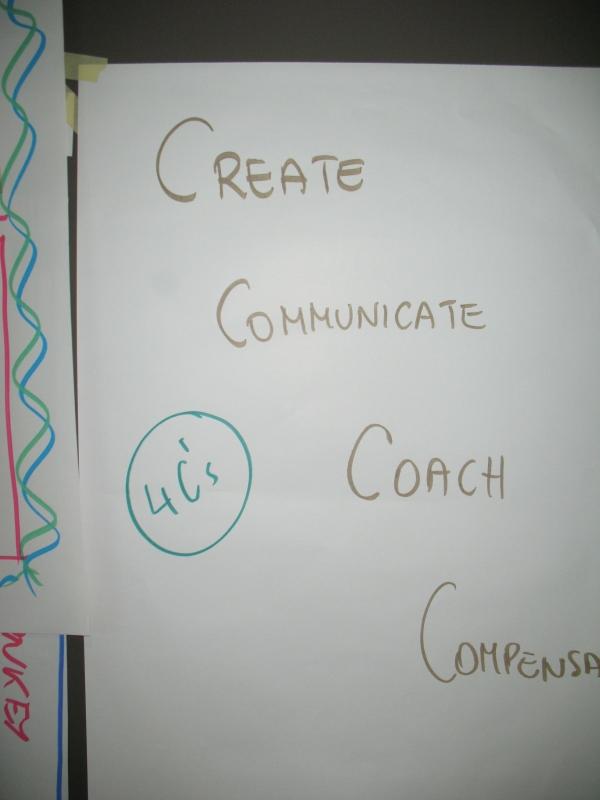 CREATE
COMMUNICATE
4C's
COACH
COMPENSA
NKEY